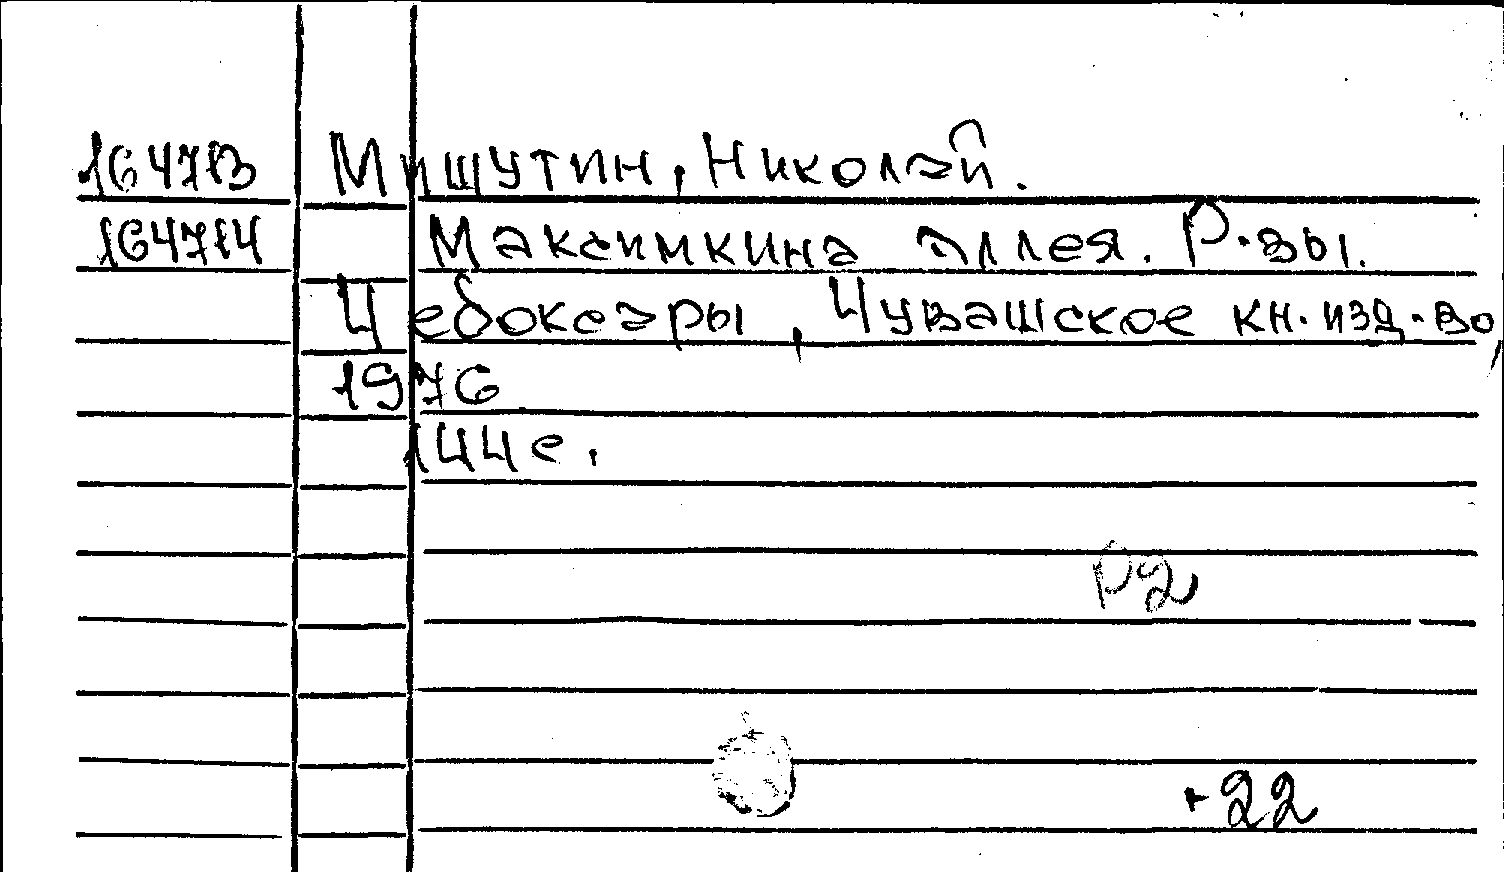 164713 Мишутин, Николай.
164714 Максимкина аллея. Р-зы.
Чебоксары, Чувашское кн. изд-во,
1976
144 с.
+22